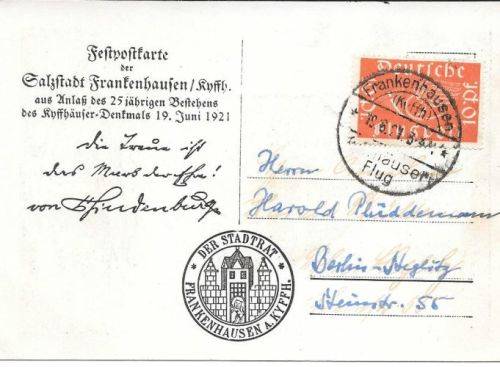 Festpostkarte
der
Salzstadt Frankenhausen/Kyffh.
aus Anlaß des 25 jährigen Bestehens
des Kyffhäuser-Denkmals 19. Juni 1921
die Treue ist
das Mark der Ehre!
von Hindenburg
DER STADTRAT
FRANKENHAUSEN A. KYFFH.
Deutsche
10 Pf.
Frankenhausen
(Kyffh)
Flug
Herrn
Harold Plüddemann
Berlin-Steglitz
Steinstr. 55